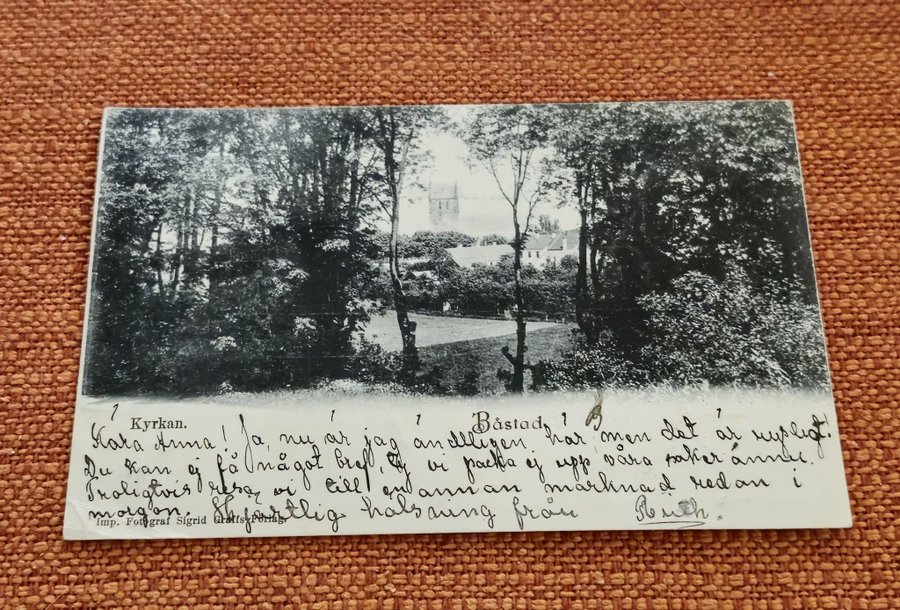 Kyrkan. Båstad.
Kära Anna! Ja, nu är jag ändtligen här, men det är rysligt.
Du kan ej få något bref, ty vi packa ej upp våra saker ännu.
Troligtvis resa vi till en annan marknad redan i
morgon. Hjertlig hälsning från Ruth
Imp. Fotograf Sigrid Graffs Förlag.